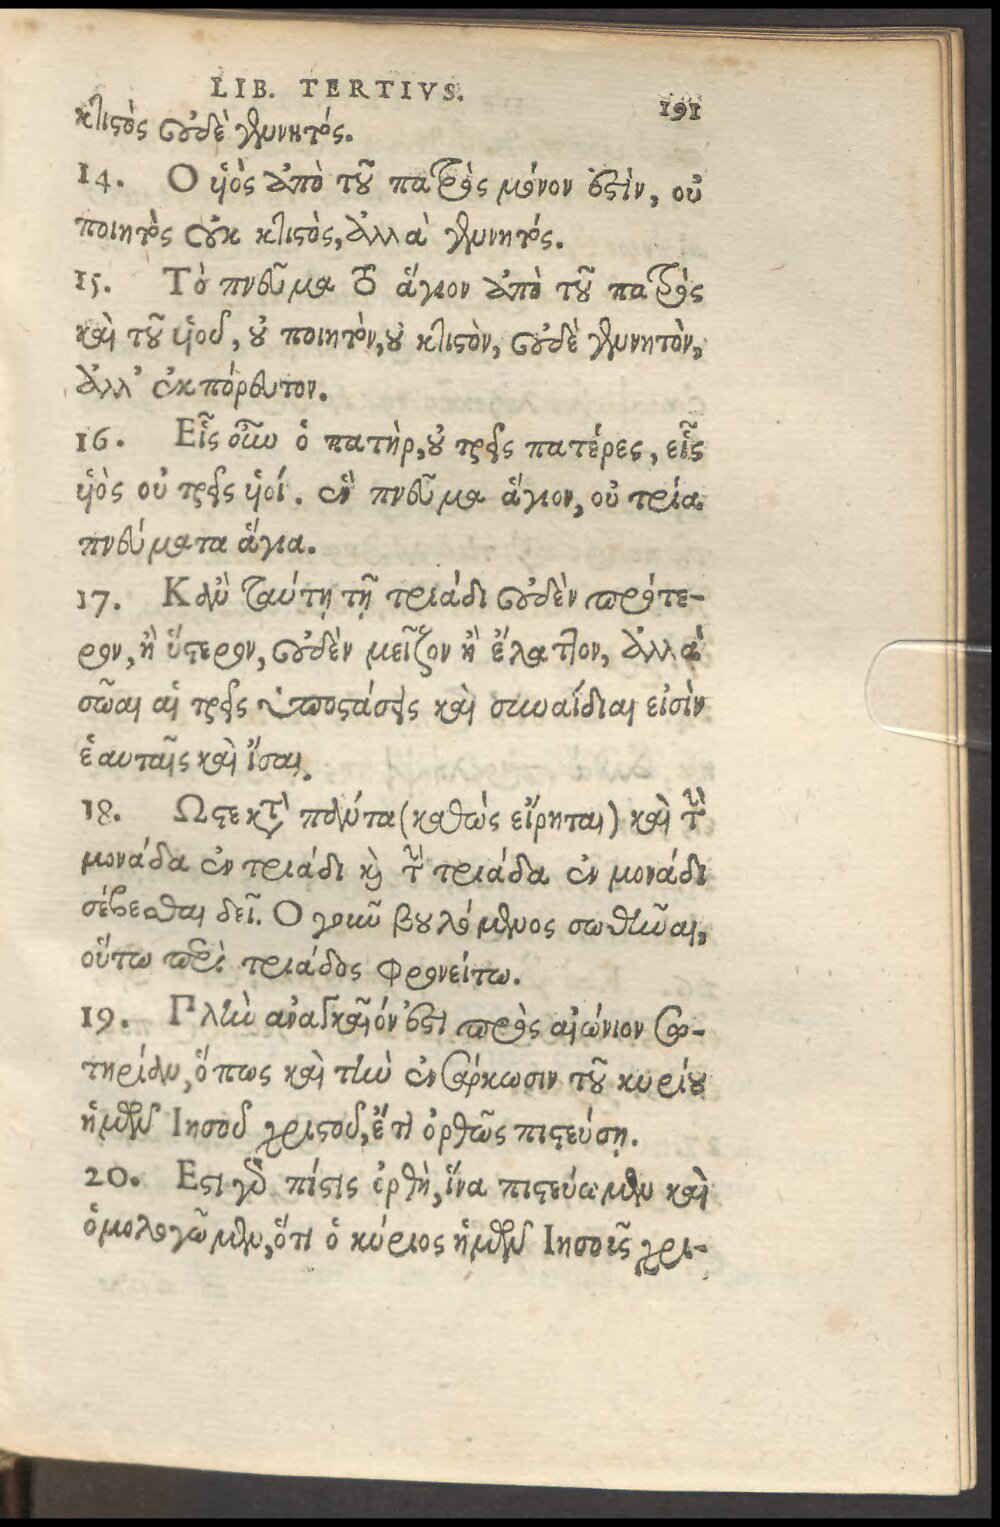 LIB. TERTIVS. 191
κλιστὸς οὐδὲ γεννητός.
14. Ο ὑιὸς ἀπὸ τοῦ πατρὸς μόνον ἐστὶν, οὐ
ποιητὸς οὐκ κλιστὸς, ἀλλὰ γεννητός.
15. Τὸ πνεῦμα τὸ ἅγιον ἀπὸ τοῦ πατρὸς
καὶ τοῦ ὑιοῦ, οὐ ποιητὸν, οὐ κλιστὸν, οὐδὲ γεννητὸν,
ἀλλ' ἐκπόρευτον.
16. Εἷς οὖν ὁ πατὴρ, οὐ τρεῖς πατέρες, εἷς
ὑιὸς οὐ τρεῖς ὑιοί. ἓν πνεῦμα ἅγιον, οὐ τρία
πνεύματα ἅγια.
17. Κἀν ταύτῃ τῇ τριάδι οὐδὲν πρότε-
ρον, ἢ ὕστερον, οὐδὲν μεῖζον ἢ ἔλαττον, ἀλλὰ
σῶαι αἱ τρεῖς ὑποστάσεις καὶ συναΐδιαι εἰσὶν
ἑαυταῖς καὶ ἴσαι.
18. Ωστε κατὰ πάντα (καθὼς εἴρηται) καὶ τὴν
μονάδα ἐν τριάδι καὶ τὴν τριάδα ἐν μονάδι
σέβεσθαι δεῖ. Ο γοῦν βουλόμενος σωθῆναι,
οὕτω περὶ τριάδος φρονείτω.
19. Πλὴν ἀναγκαῖόν ἐστι πρὸς αἰώνιον σω-
τηρίαν, ὅπως καὶ τὴν ἐνσάρκωσιν τοῦ κυρίου
ἡμῶν Ιησοῦ χριστοῦ, ἔτι ὀρθῶς πιστεύσῃ.
20. Εστι γὰρ πίστις ὀρθὴ, ἵνα πιστεύωμεν καὶ
ὁμολογῶμεν, ὅτι ὁ κύριος ἡμῶν Ιησοῦς χρι-